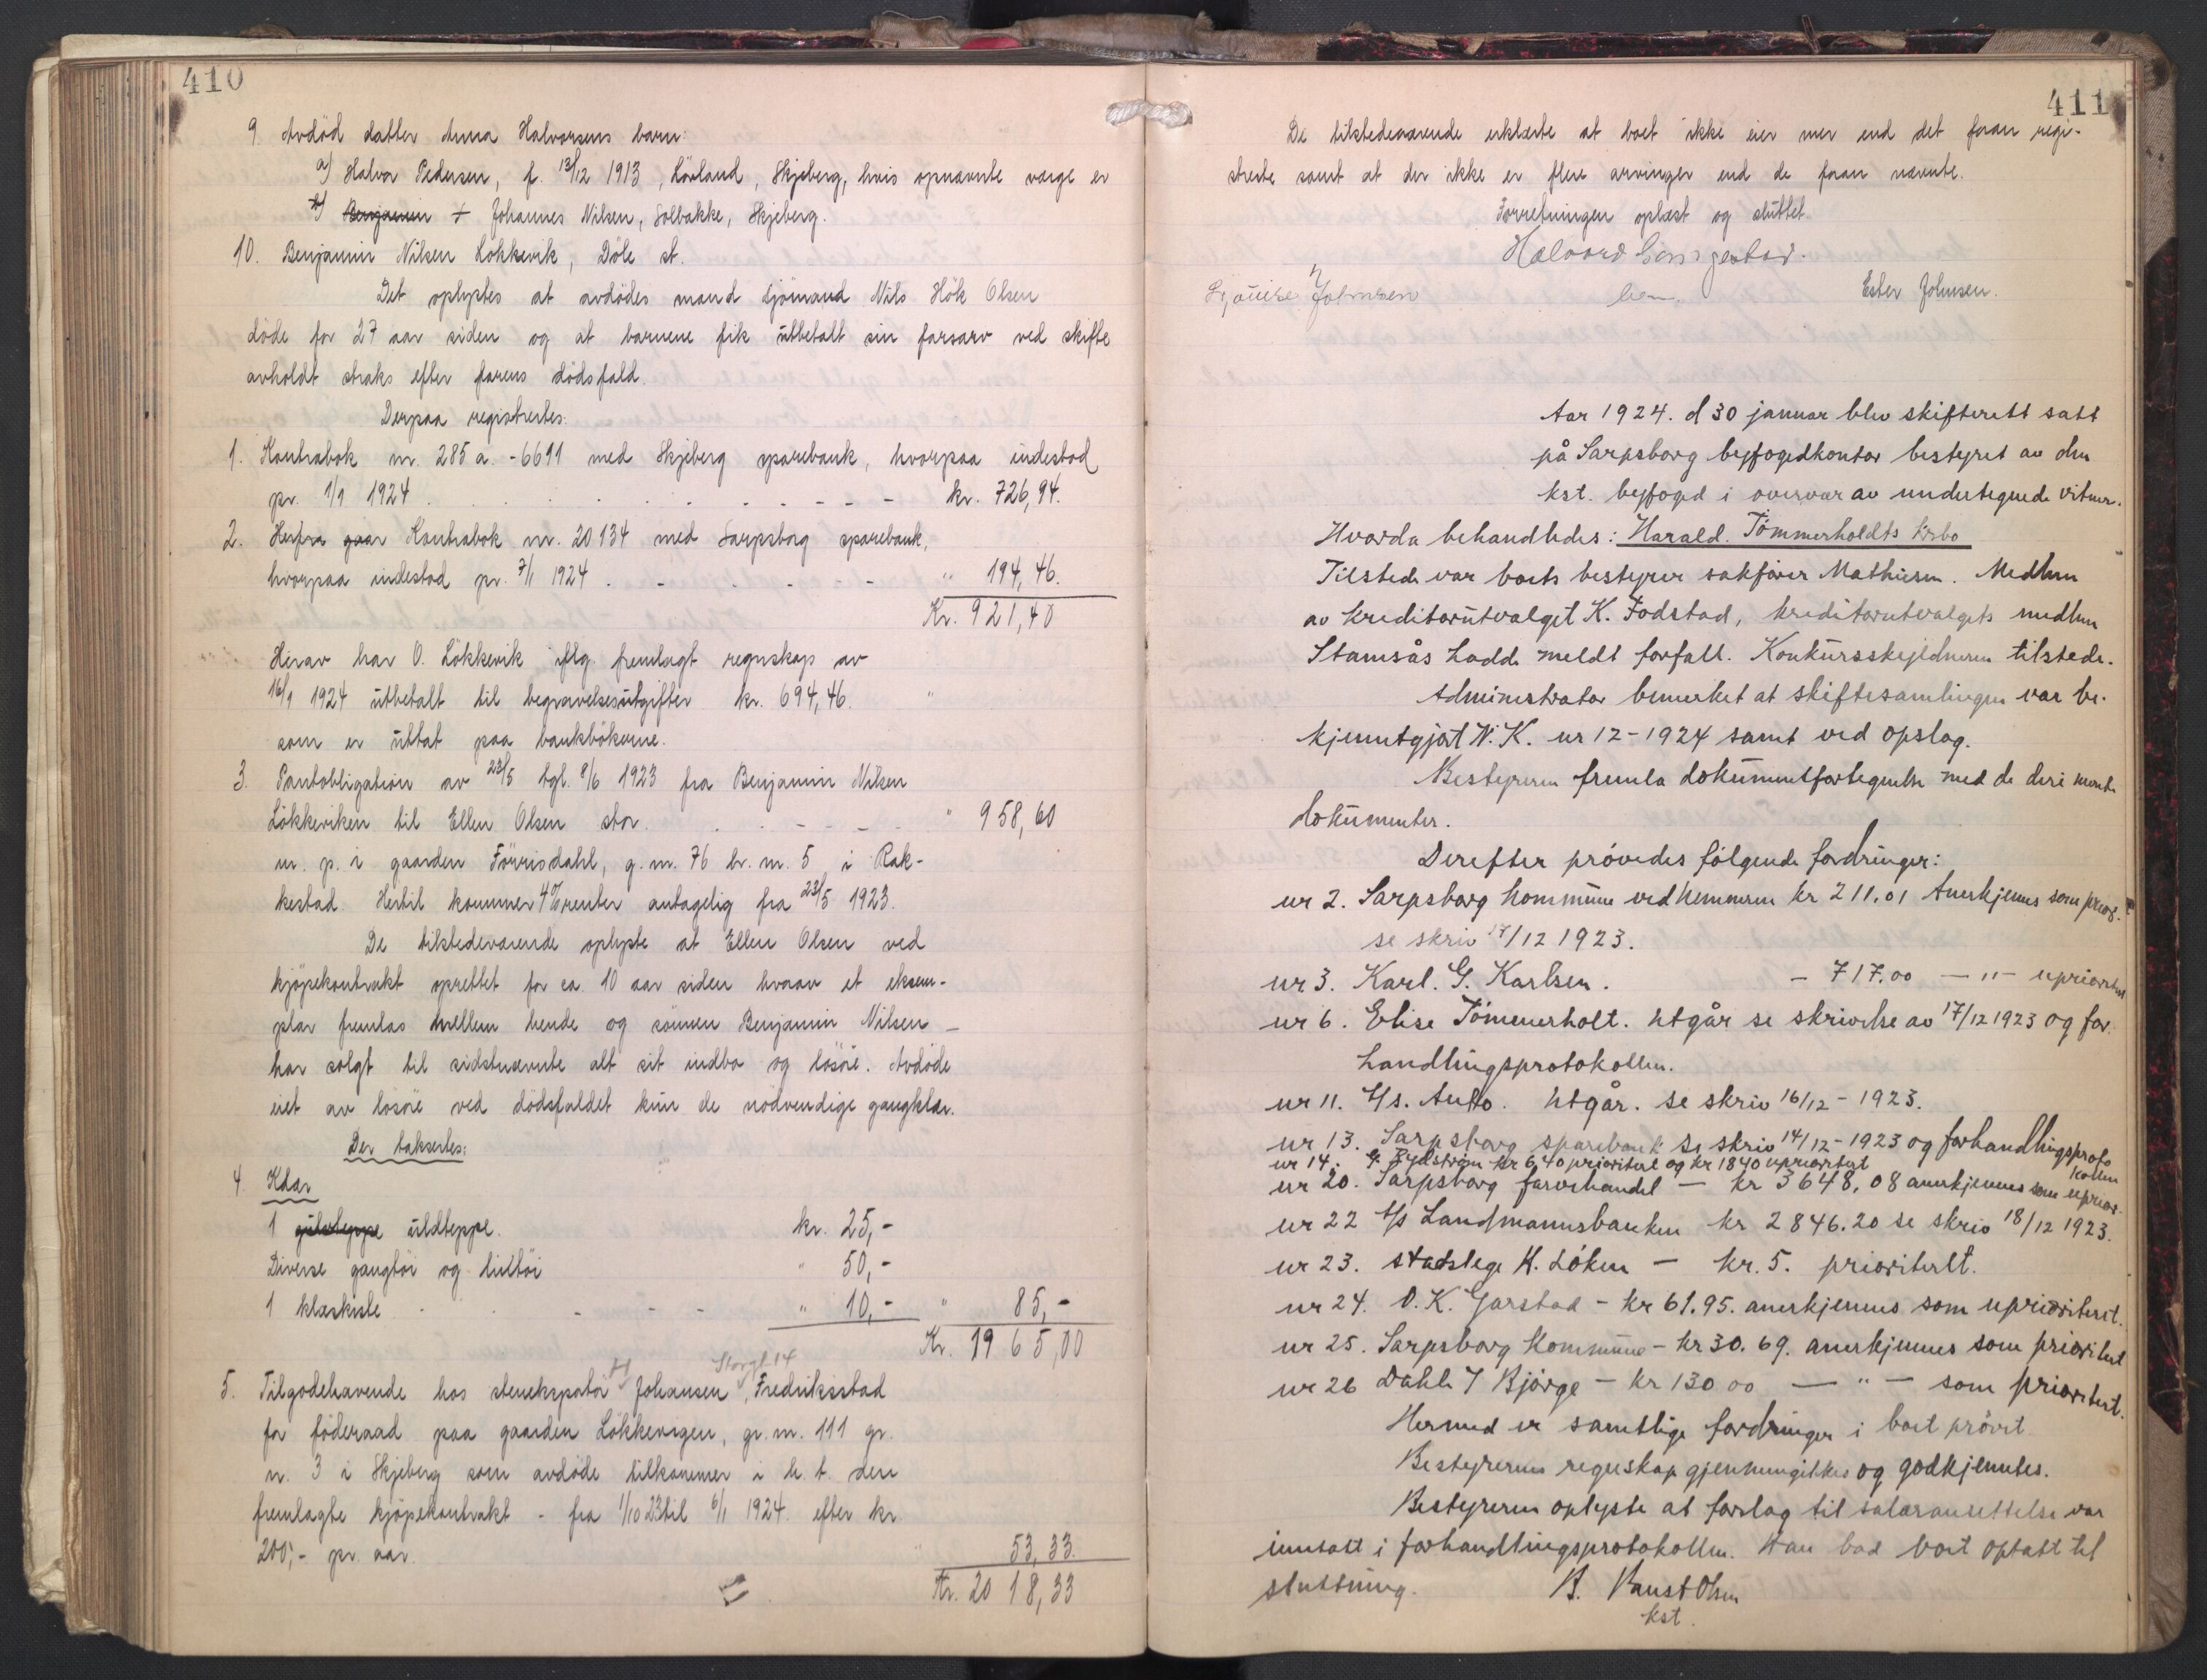 410
9 Avdöd datter Anna Halvorsens barn:
a) Halvor Pedersen, f. 13/12 1913, Lövland, Skjeberg, hvis opnævnte værge er
b) Benjamin + Johannes Nilsen, Solbakke, Skjeberg.
10. Benjamin Nilsen Lökkevik, Döle st.
Det oplystes at avdödes mand sjömand Nils Hök Olsen
döde for 27 aar siden og at barnene fik utbetalt sin farsarv ved skifte
avholdt straks efter farens dödsfald.
Derpaa registrertes:
1. Kontrabok nr. 285 a. - 6611 med Skjeberg sparebank, hvorpaa indestod
pr. 1/1 1924 . . . . . . kr. 726,94.
2. Herfra gaar Kontrabok nr. 20134 med Sarpsborg sparebank,
hvorpaa indestod pr. 7/1 1924 . . . . " 194,46.
Kr. 921,40
Herav har O. Lökkevik iflg. fremlagt regnskap av
16/1 1924 utbetalt til begravelsesutgifter kr. 694,46. "
som er uttat paa bankbökerne.
3. Pantobligation av 23/5 tgl. 8/6 1923 fra Benjamin Nilsen
Lökkeviken til Ellen Olsen stor . . . . " 958,60
m. p. i gaarden Förrisdahl, g.nr. 76 br. nr. 5 i Rak-
kestad. Hertil kommer 4% renter antagelig fra 23/5 1923.
De tilstedeværende oplyste at Ellen Olsen ved
kjöpekontrakt oprettet for ca. 10 aar siden hvorav et eksem-
plar fremlas mellem hende og sönnen Benjamin Nilsen -
har solgt til sidstnævnte alt sit indbo og lösöre. Avdöde
eiet av lösöre ved dödsfaldet kun de nödvendige gangklær.
Der taksertes:
4. Klær
1 gulvteppe uldteppe. kr. 25,-
Diverse gangtöi og lintöi " 50,-
1 klæskiste . . . . " 10,- " 85,-
Kr. 1965,00
5. Tilgodehavende hos steneksportör H Johansen, Storgt. 14 Fredriksstad
for föderaad paa gaarden Lökkevigen, gr. nr. 111 gr.
nr. 3 i Skjeberg som avdöde tilkommer i h. t. den
fremlagte kjöpekontrakt - fra 1/10 23 til 6/1 1924 efter kr.
200,- pr. aar. " 53,33.
Kr. 2018,33
411
De tilstedeværende erklærte at boet ikke eier mer end det foran regi-
strerte samt at der ikke er flere arvinger end de foran nævnte.
Forretningen oplæst og sluttet.
Halvord
Johnsen Ester Johnsen.
Aar 1924. d 30 januar blev skifterett satt
på Sarpsborg byfogedkontor bestyret av den
kst. byfoged i overvær av undertegnede vitner.
Hvorda behandledes: Harald Tömmerholdts krbo
Tilstede var boets bestyrer sakförer Mathiesen. Medlem
av kreditorutvalget K. Fodstad, kreditorutvalgets medlem
Stamsås hadde meldt forfall. Konkursskyldneren tilstede.
Administrator bemerket at skiftesamlingen var be-
kjenntgjort N. K. nr 12-1924 samt ved opslag.
Bestyreren fremla dokumentfortegnelse med de deri nevnte
dokumenter.
Derefter prövedes fölgende fordringer:
nr 2. Sarpsborg kommune ved kemneren kr 211.01 Anerkjennes som prior.
se skriv 17/12 1923.
nr 3. Karl. G. Karlsen. - 717.00 — " — uprioritert
nr 6. Elise Tömmerholt. utgår se skrivelse av 17/12 1923 og for-
handlingsprotokollen.
nr 11. A/s. Auto. utgår. se skriv 16/12 - 1923.
nr 13. Sarpsborg sparebank se skriv 14/12 - 1923 og forhandlingsproto
kollen
nr 14. G. Fjelström kr 6,40 prioritert og kr 1840 uprioritert
nr 20. Sarpsborg farvehandel — kr 3648,08 anerkjennes som uprior.
nr 22 A/s Landmannsbanken kr 2846.20 se skriv 18/12 1923.
nr 23. stadslege H. Löken — kr. 5. prioritertt.
nr 24. O. K. Garstad - kr 61.95. anerkjennes som uprioritert.
nr 25. Sarpsborg Kommune - kr 30.69. anerkjennes som prioritert
nr 26 Dahle & Bjorge - kr 130 00 — " — som prioritert.
Hermed er samtlige fordringer i boet prövet.
Bestyrerens regnskap gjennemgikkes og godkjentes.
Bestyreren oplyste at forslag til salæransettelse var
inntatt i forhandlingsprotokollen. Han bad boet optatt til
sluttning. B. Faust Olsen
kst.